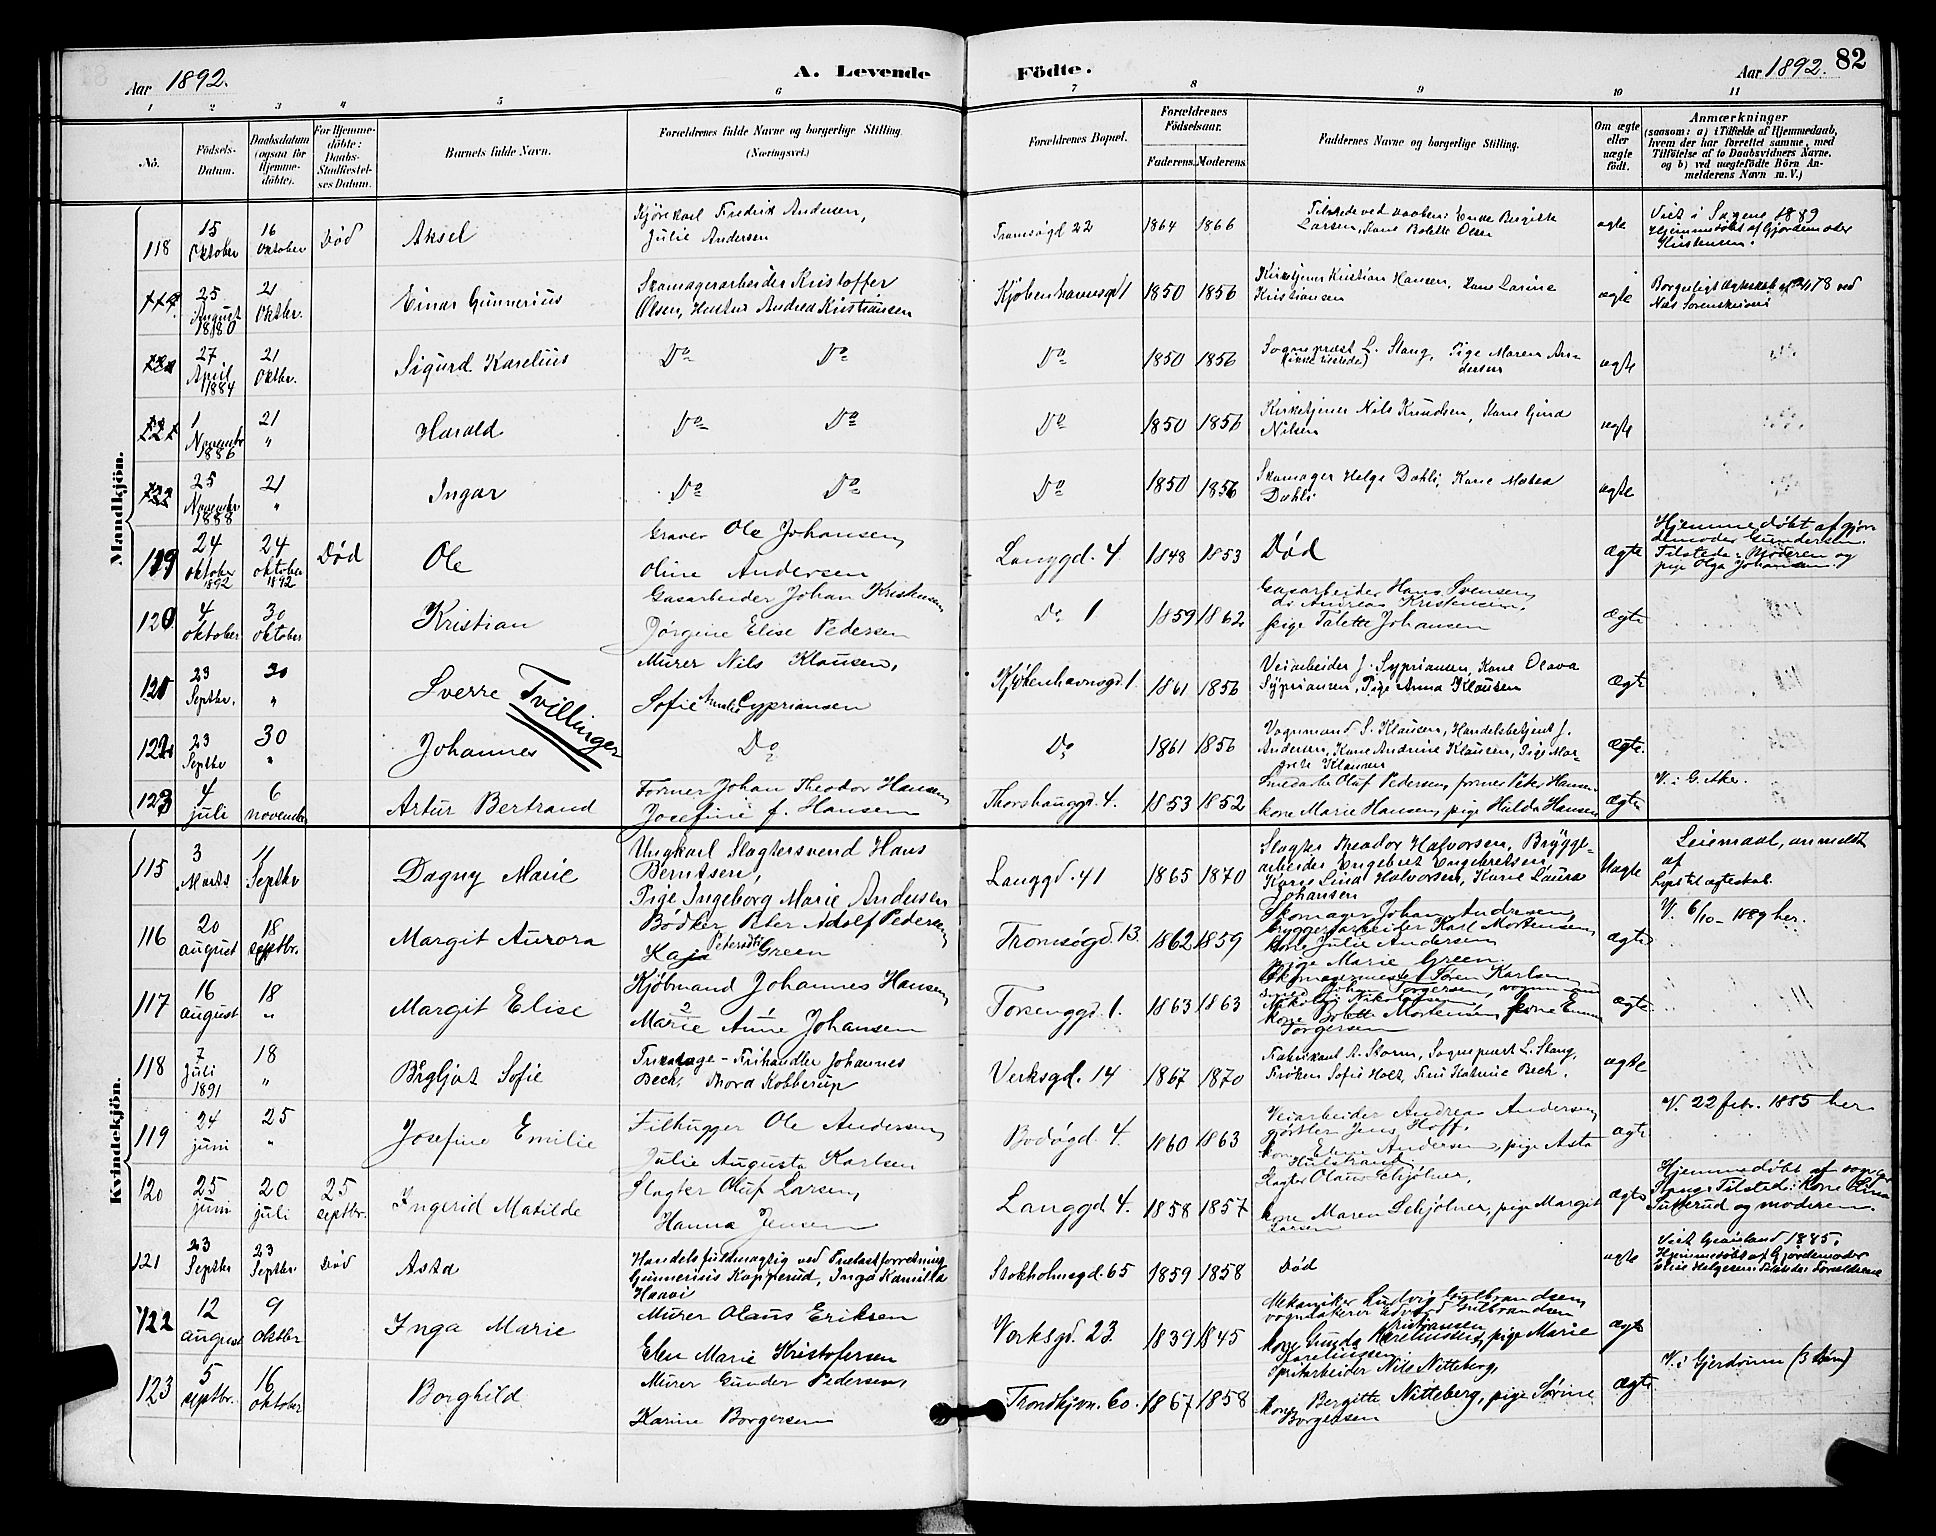 Aar 1892. A. Levende Födte. Aar 1892. 82
1 2 3 4 5 6 7 8 9 10 11
No. Födsels-Datum. Daabsdatum (ogsaa for Hjemme-döbte). For Hjemme-döbte: Daabs-Stadfæstel-ses Datum. Barnets fulde Navn. Forældrenes fulde Navne og borgerlige Stilling. (Næringsvei.) Forældrenes Bopæl. Forældrenes Födselsaar. Faderens. Moderens. Faddernes Navne og borgerlige Stilling. Om ægte eller uægte födt. Anmærkninger (saasom: a) i Tilfælde af Hjemmedaab, hvem der har forrettet samme, med Tilföielse af to Daabsvidners Navne, og b) ved uægtefödte Börn An-melderens Navn m. V.)
Mandkjön.
118 15 Oktober 16 Oktober Död Aksel Kjørekarl Fredrik Andersen, Julie Andersen Tromsøgd 22 1864 1866 Tilstede ved daaben: Enke Bergitte Larsen, Kone Bolette Olsen ægte Viet i Sagene 1889 Hjemmedøbt af Gjordemoder Kristensen.
119 25 August 1880 21 Oktbr. Einar Gunnerius Skomagerarbeider Kristoffer Olsen, Hustru Andrea Kristiansen Kjøbenhavnsgd 1 1850 1856 Kirketjener Kristian Hansen, Kone Larine Kristiansen ægte Borgerligt Ægteskab 78 ved Næs Sorenskriveri
120 27 April 1884 21 Oktbr. Sigurd Karelius Do Do Do 1850 1856 Sogneprest L. Stang, (ikke tilstede) Pige Maren An-dersen ægte
121 1 Novembr 1886 21 " Harald Do Do Do 1850 1856 Kirketjener Nils Knudsen, Kone Gina Nilsen ægte
122 25 Novembr 1888 21 " Ingar Do Do Do 1850 1856 Skomager Helge Dahli, Kone Dahli ægte
119 24 oktober 1892 24 oktober 1892 Död Ole Graver Ole Johansen, Oline Andersen Langgd. 4 1848 1853 Död Ægte Hjemmedøbt af gjor-demoder Gundersen. Tilstede: Moderen og pige Olga Johansen.
120 4 oktober 30 oktober Kristian Gasarbeider Johan Kristensen, Jörgine Elise Pedersen Do 1 1859 1862 Gasarbeider Hans Svensen, do Andreas Kristensen, pige Talette Johansen Ægte
121 23 Septbr. 30 " Sverre Tvillinger Murer Nils Klausen, Sofie Amalie Cypriansen Kjøbenhavnsgd 1. 1861 1856 Veiarbeider J. Sypriansen, Kone Olava Sypriansen, Pige Anna Klausen Ægte
122 23 Septbr 30 " Johannes Do Do 1861 1856 Vognmand S. Klausen, Handelsbetjent J. Andersen, Kone Andrine Klausen, Pige Mar-grete Klausen Ægte.
123 4 juli 6 november Artur Bertrand Former Johan Theodor Hansen, Josefine f. Hansen Thorshauggd. 4. 1853 1852 Olaf Pedersen, former Peter Hansen kone Marie Hansen, pige Hulda Hansen Ægte V. i G. Aker.
Kvindekjön.
115 3 Marts 11 Septbr Dagny Marie Ungkarl Slagtersvend Hans Berntsen, Pige Ingeborg Marie Andersen Langgd. 41 1865 1870 Slagter Theodor Halvorsen, Brygge-arbeider Engebret Engebretsen, Kone Lina Halvorsen, Kone Laura Johansen Uægte Leiermaal, anmeldt af
116 20 august 18 septbr. Margit Aurora Bödker Peter Adolf Pedersen, Kaja Petersdtr Green Tromsøgd. 13. 1862 1859 Skomager Johan Andresen, bryggeriarbeider Karl Mortensen, kone Julie Andersen pige Marie Green. ægte V. 6/10 - 1889 her.
117 16 august 18 " Margit Elise Kjöbmand Johannes Hansen, Marie Anne Johansen Forsenggd. 1. 1863 1863 Skomagermester Sören Karlsen John Torgersen, vognmand Nikolai Nikolaisen, kone Bolette Mortensen, kone Emma Torgersen ægte
118 7 Juli 1891 18 " Bergljot Sofie Trikotage-Frihandler Johannes Bech, Thora Kobberup Verksgd. 14 1867 1870 Fabrikant A. Storm, Sogneprest L. Stang, Frøken Sofie Holt, Fru Katrine Bech. ægte
119 24 juni 25 " Josefine Emilie Filhugger Ole Andersen, Julie Augusta Karlsen Bodøgd. 4. 1860 1863 Veiarbeider Andreas Andersen, gjørtler Jens Hoff, kone Elene Andersen, pige Asta Hulstrand ægte V. 22 febr. 1885 her
120 25 juni 20 juli 25 septbr. Ingerid Matilde Slagter Oluf Larsen, Hanna Jensen Langgd. 4. 1858 1857 Slagter Olaus Schjølner, kone Maren Schjølner, pige Margit Larsen ægte Hjemmedøbt af sogneprest Stang. Tilsted: Kone Elina Sutterud og moderen.
121 23 Septbr 23 Septbr Död Asta Handelsfuldmægtig ved Trælastforretning Gunnerius Kopperud, Inga Kamilla Haavi Stokholmsgd. 65 1859 1858 Död ægte Viet Grønland 1885. Hjemmedøbt af Gjordemoder Elise Helgesen. Forældrene
122 12 august 9 oktbr Inga Marie Murer Olaus Eriksen Elen Marie Kristofersen Verksgd. 23. 1839 1845 Mekaniker Ludvig Gulbrandsen, vognlakerer Edvard Gulbrandsen kone Gunda Kristiansen, pige Marie Karelinssen. ægte
123 5 septbr. 16 oktober Borghild Murer Gunder Pedersen, Karine Borgersen Trondhjm. 60. 1867 1858 Spritarbeider Nils Nitteberg, kone Bergitte Nitteberg, pige Sørine Borgersen Ægte. V. i Gjerdrum (3 Barn)